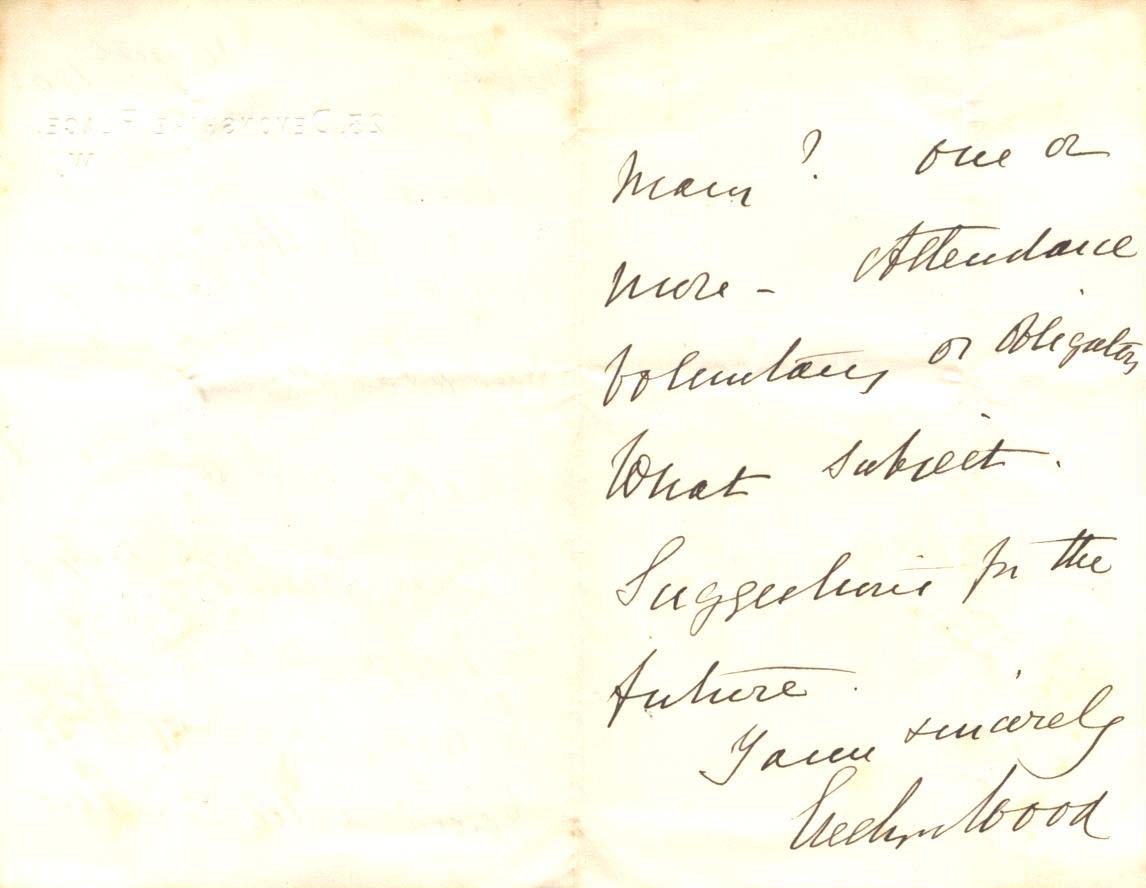 23, DEVONSHIRE PLACE.
W
Many ? one or
more - Attendance
Voluntary or Obligatory
What subject.
Suggestions for the
future.
Yours sincerely
Evelyn Wood